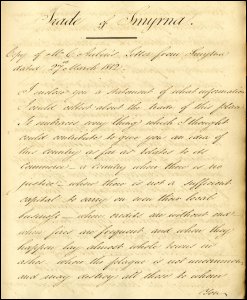 Trade of Smyrna.
Copy of Mr. C. Aubin's Letter from Smyrna
dated 27th March 1812.
I inclose you a statement of what information
I could collect about the trade of this place
It embraces every thing which I thought
could contribute to give you an idea of
this country as far as relates to its
commerce – a country where there is no
justice – where there is not a sufficient
capital to carry on even their local
business – where credits are without end
when fires are frequent, and when they
happen lay almost whole towns in
ashes – where the plague is not uncommon,
and may destroy all those to whom